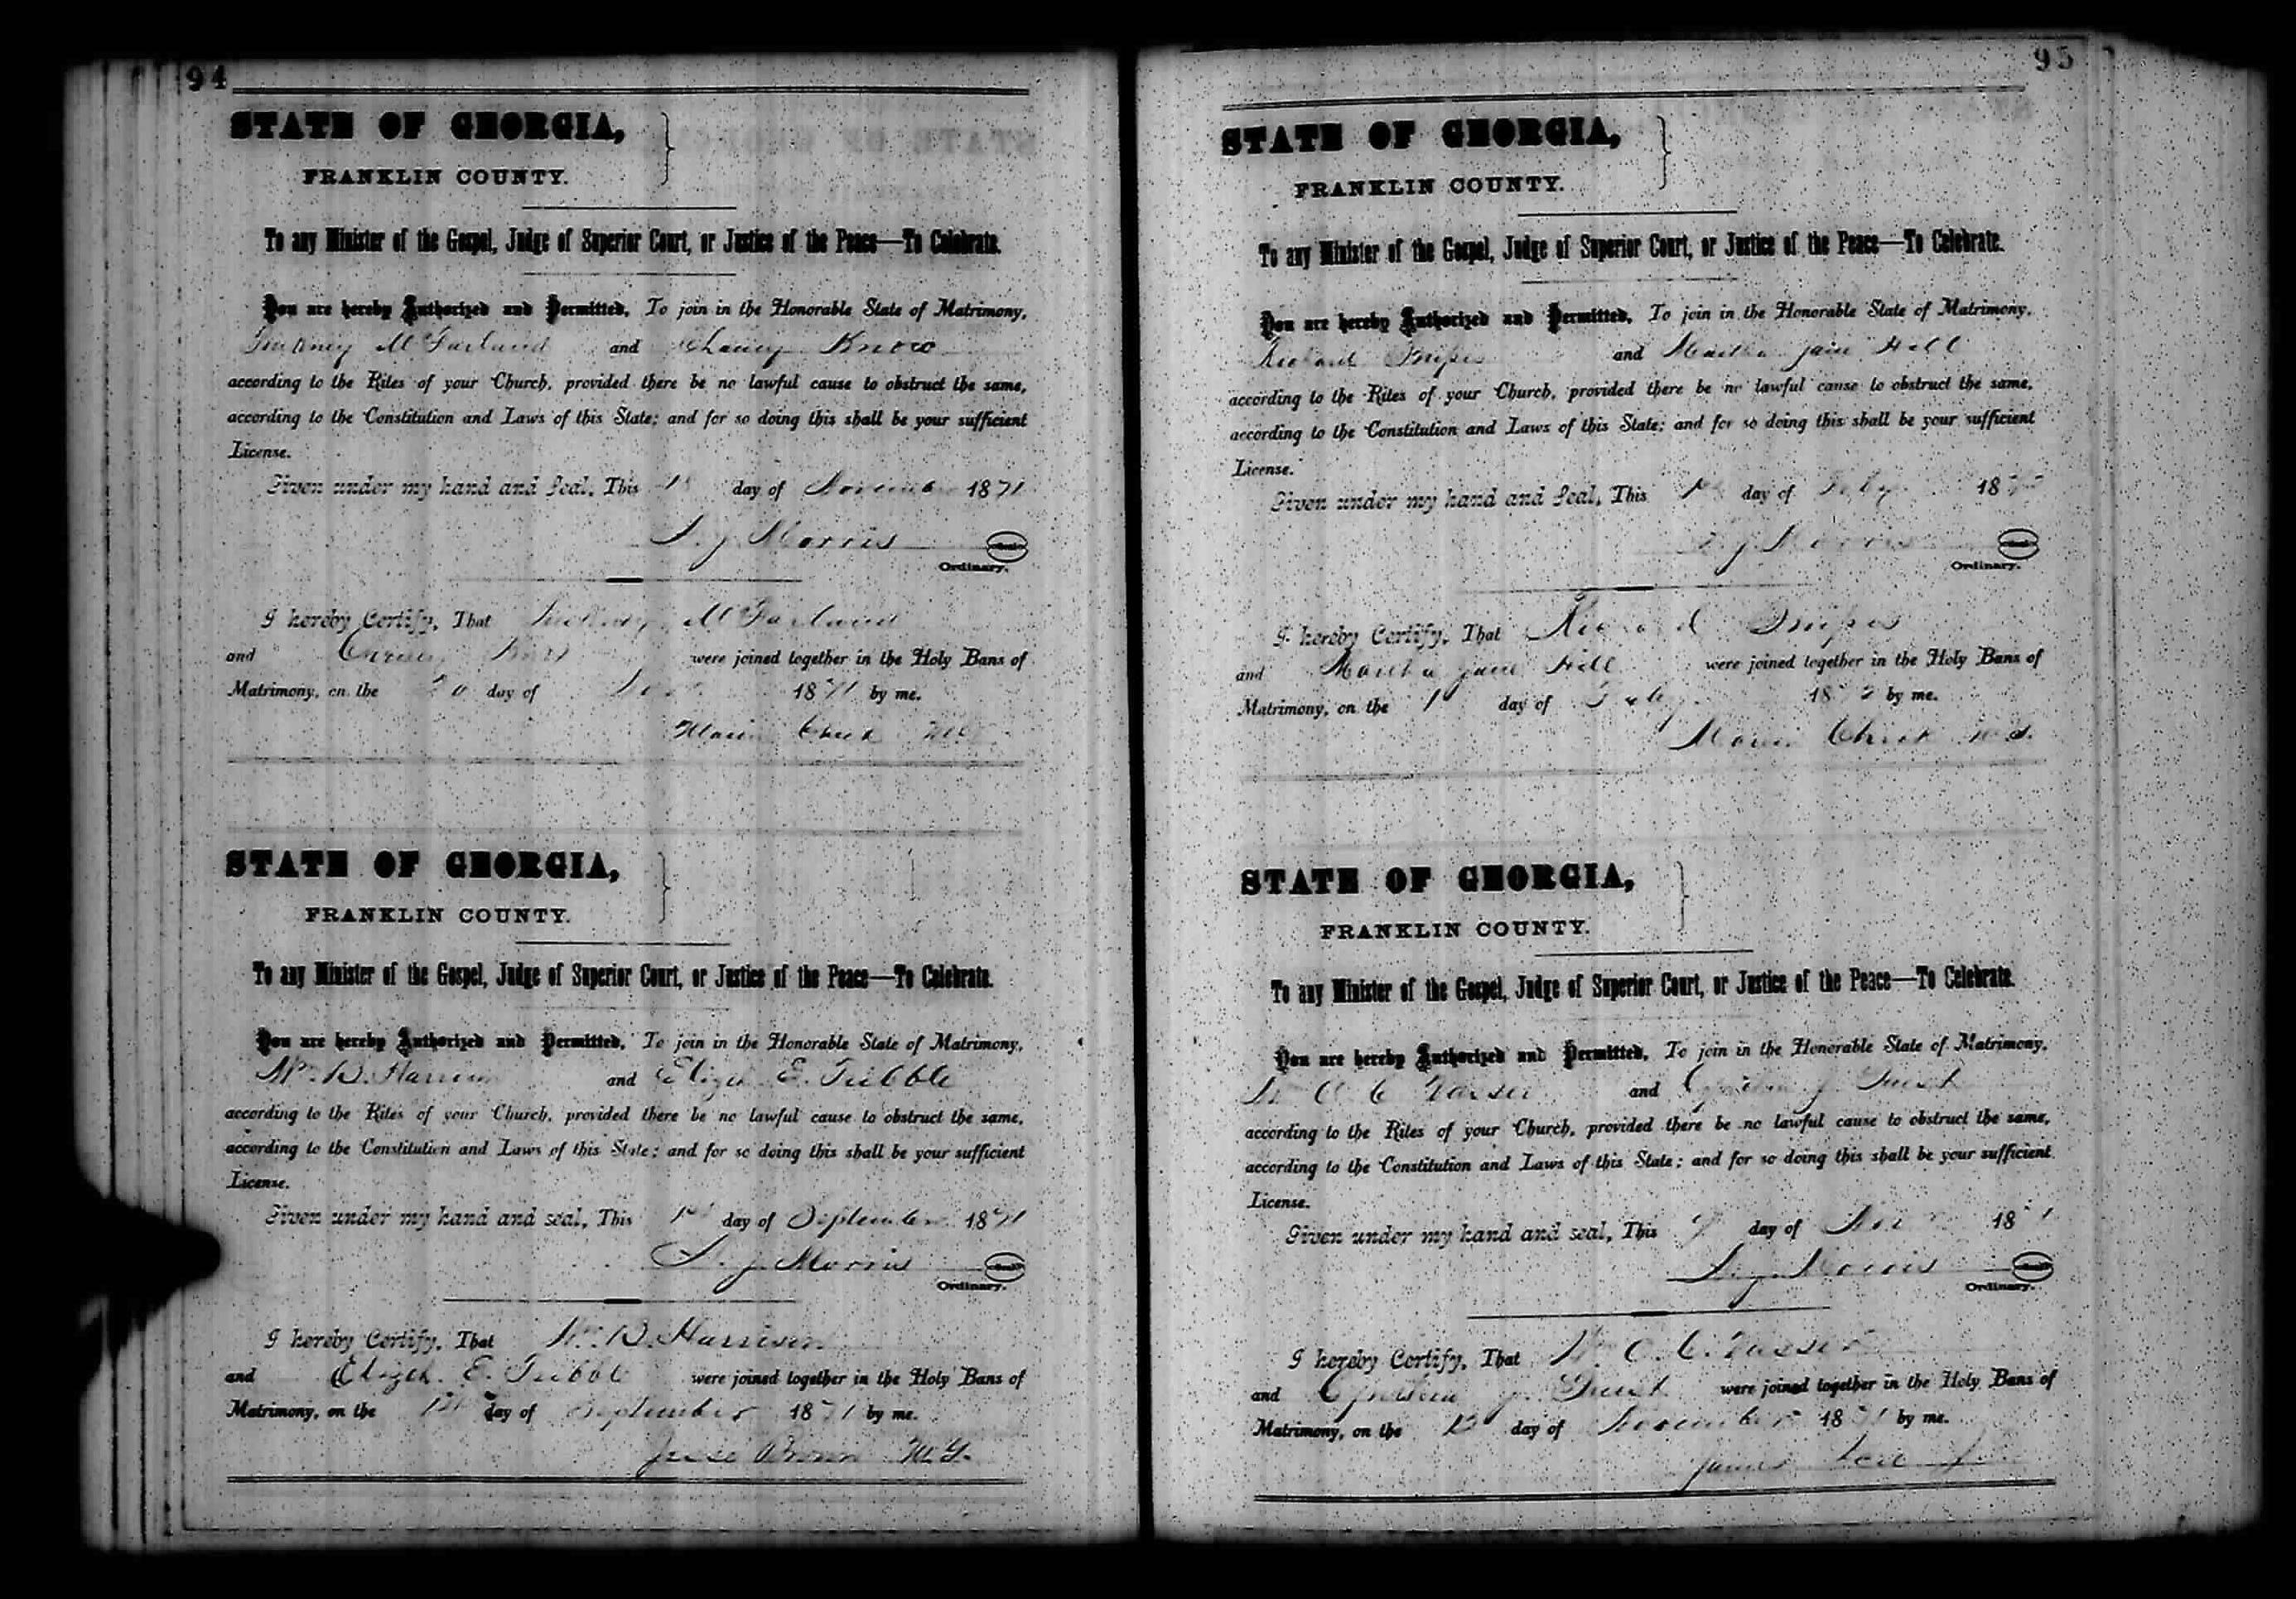 94
STATE OF GEORGIA,
FRANKLIN COUNTY.
To any Minister of the Gospel, Judge of Superior Court, or Justice of the Peace—To Celebrate.
You are hereby Authorized and Permitted, To join in the Honorable State of Matrimony,
McFarland and Chaney Knox
according to the Rites of your Church, provided there be no lawful cause to obstruct the same,
according to the Constitution and Laws of this State; and for so doing this shall be your sufficient
License.
Given under my hand and Seal, This day of November 1871
A. J. Morris
Ordinary.
I hereby Certify, That McFarland
and were joined together in the Holy Bans of
Matrimony, on the day of 1871 by me.
STATE OF GEORGIA,
FRANKLIN COUNTY.
To any Minister of the Gospel, Judge of Superior Court, or Justice of the Peace—To Celebrate.
You are hereby Authorized and Permitted, To join in the Honorable State of Matrimony,
Wm. B. Harrison and Elizth. E. Tribble
according to the Rites of your Church, provided there be no lawful cause to obstruct the same,
according to the Constitution and Laws of this State; and for so doing this shall be your sufficient
License.
Given under my hand and seal, This 1st day of September 1871
A. J. Morris
Ordinary.
I hereby Certify, That Wm. B. Harrison
and Elizth. E. Tribble were joined together in the Holy Bans of
Matrimony, on the day of September 1871 by me.
Jesse Brown M. G.
95
STATE OF GEORGIA,
FRANKLIN COUNTY.
To any Minister of the Gospel, Judge of Superior Court, or Justice of the Peace—To Celebrate.
You are hereby Authorized and Permitted, To join in the Honorable State of Matrimony,
Richard and Martha Jane Hill
according to the Rites of your Church, provided there be no lawful cause to obstruct the same,
according to the Constitution and Laws of this State; and for so doing this shall be your sufficient
License.
Given under my hand and Seal, This day of Feby 18
A. J. Morris
Ordinary.
I hereby Certify, That Richard
and Martha Jane Hill were joined together in the Holy Bans of
Matrimony, on the day of Feby 1872 by me.
STATE OF GEORGIA,
FRANKLIN COUNTY.
To any Minister of the Gospel, Judge of Superior Court, or Justice of the Peace—To Celebrate.
You are hereby Authorized and Permitted, To join in the Honorable State of Matrimony,
and J.
according to the Rites of your Church, provided there be no lawful cause to obstruct the same,
according to the Constitution and Laws of this State; and for so doing this shall be your sufficient
License.
Given under my hand and seal, This day of 18
A. J. Morris
Ordinary.
I hereby Certify, That
and J. were joined together in the Holy Bans of
Matrimony, on the day of November 1871 by me.
James